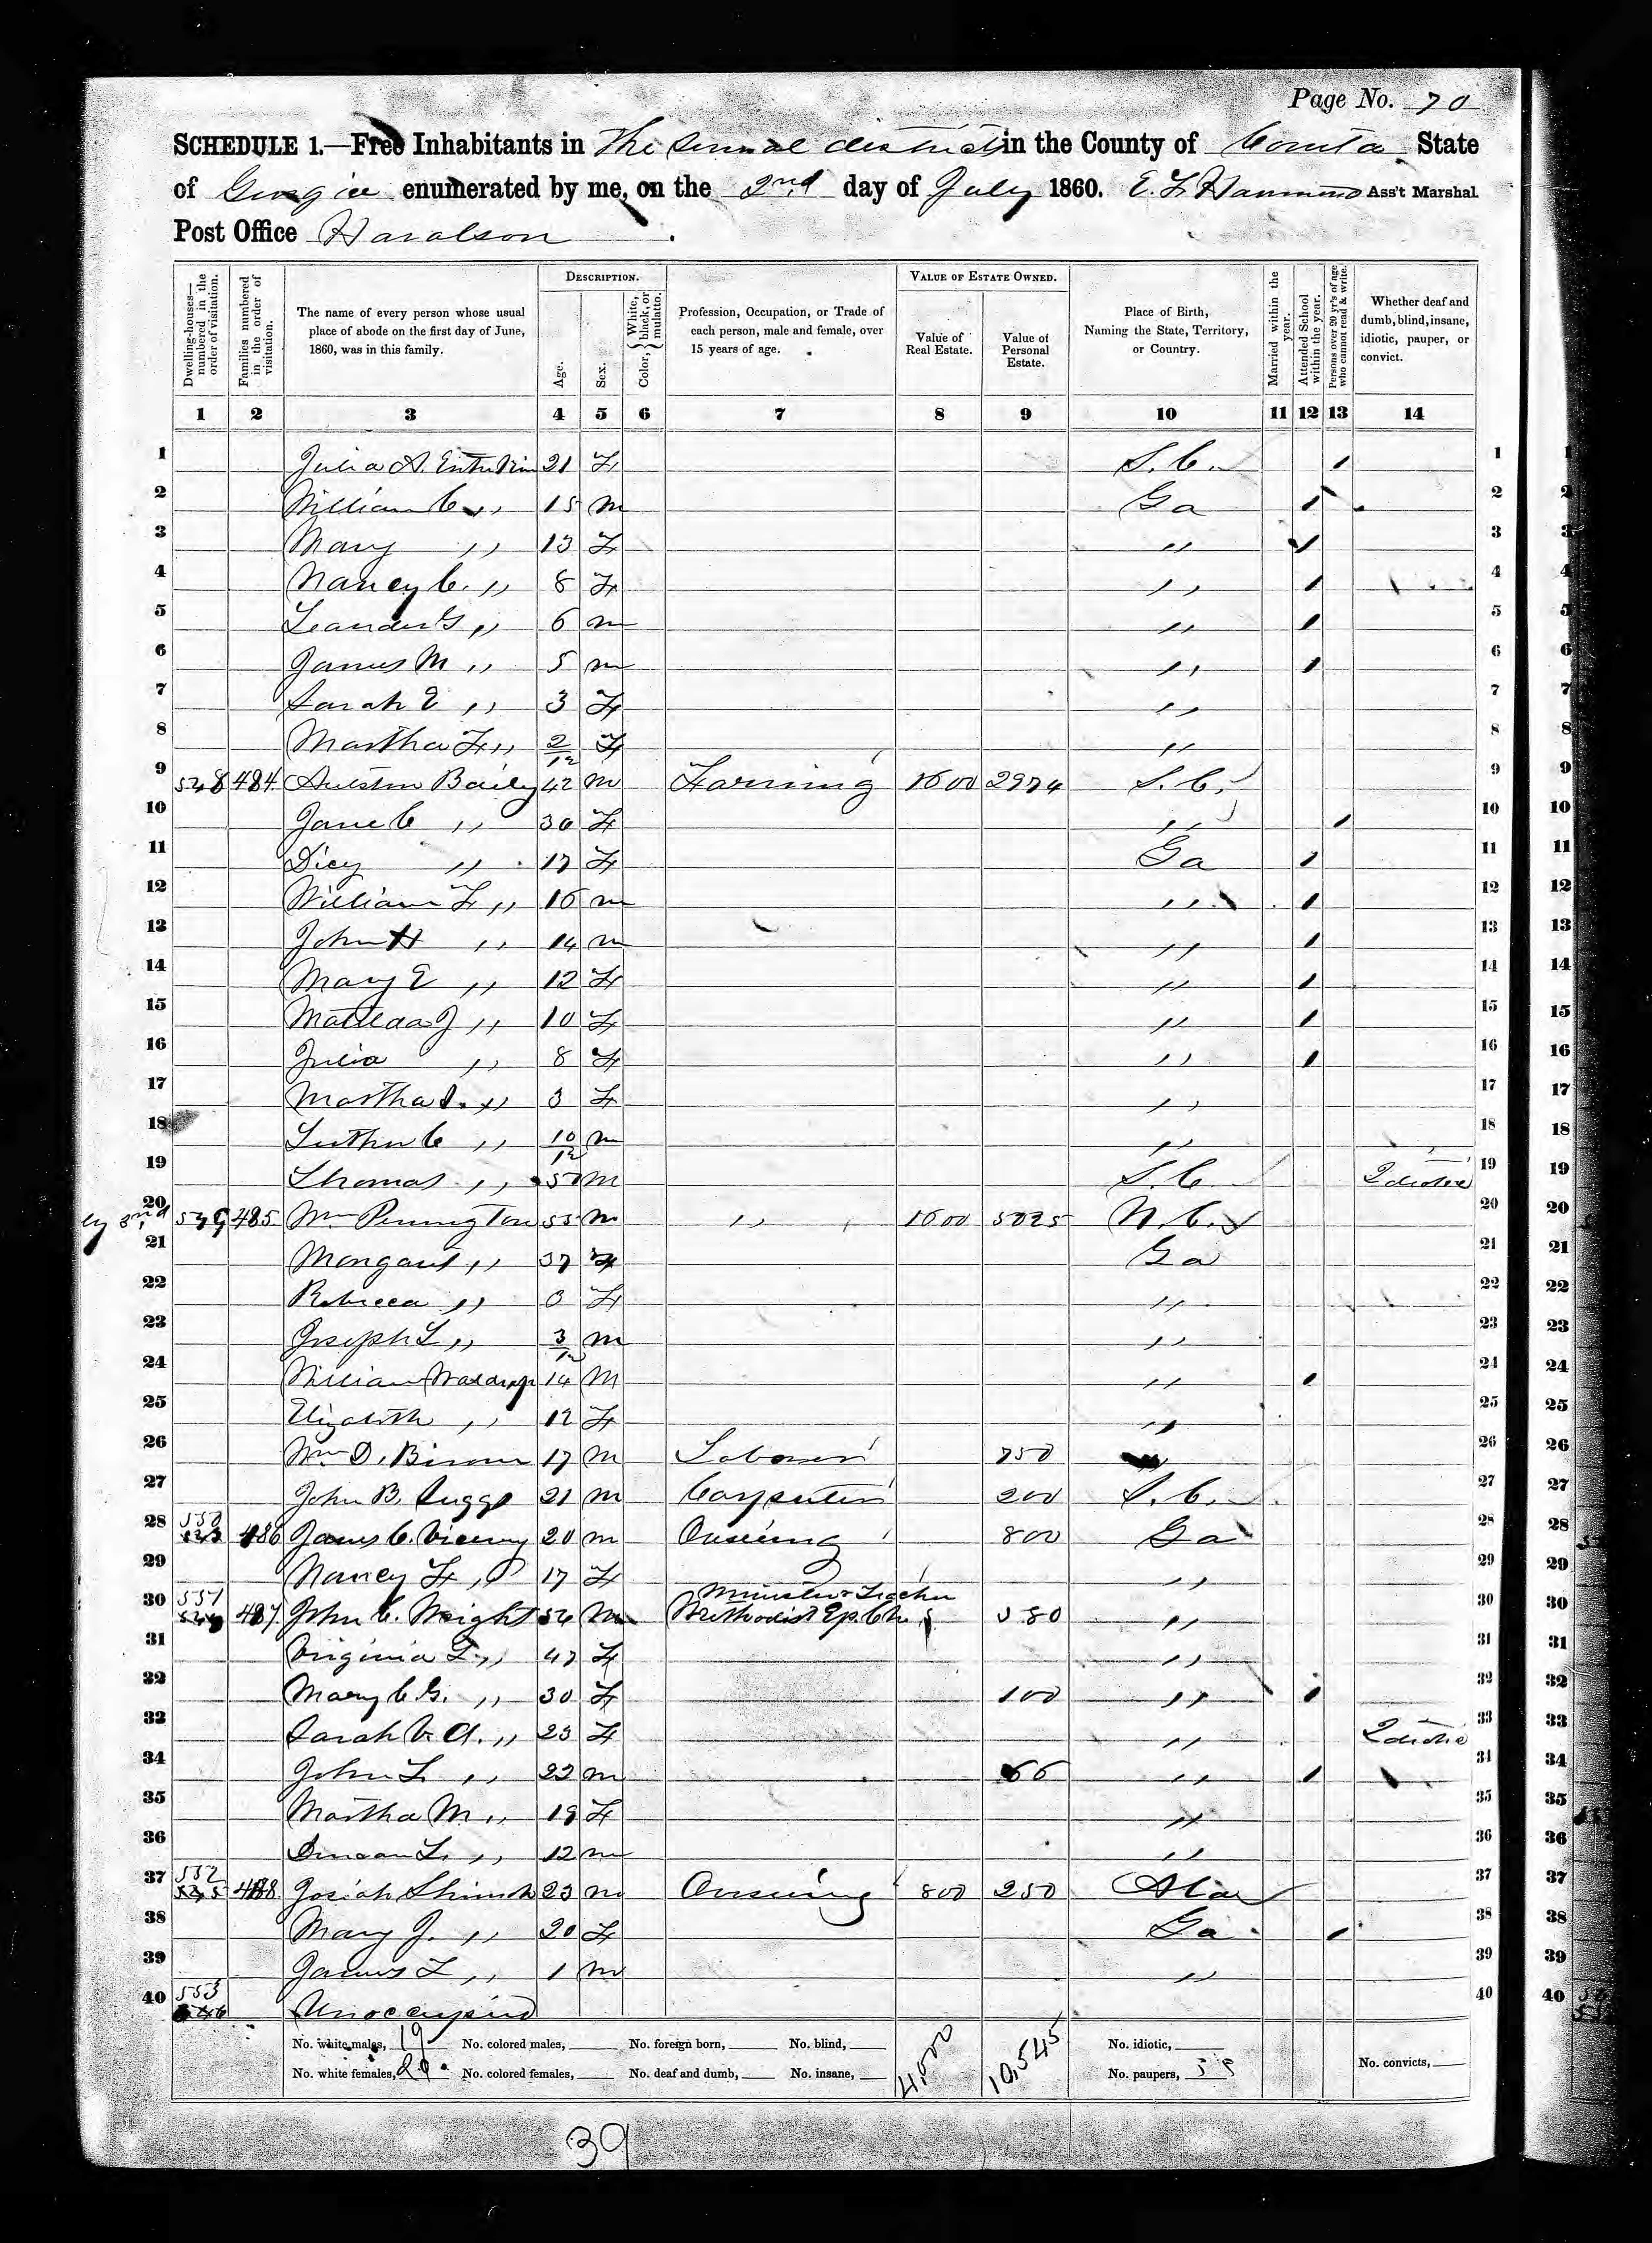 Page No. 70
SCHEDULE 1.—Free Inhabitants in The Second district in the County of Coweta State
of Georgia enumerated by me, on the 2nd day of July 1860. E. F. Hammond Ass't Marshal
Post Office Haralson
Dwelling-houses—numbered in the order of visitation.
Families numbered in the order of visitation.
The name of every person whose usual place of abode on the first day of June, 1860, was in this family.
DESCRIPTION.
Age.
Sex.
Color, {White, black, or mulatto.
Profession, Occupation, or Trade of each person, male and female, over 15 years of age.
VALUE OF ESTATE OWNED.
Value of Real Estate.
Value of Personal Estate.
Place of Birth, Naming the State, Territory, or Country.
Married within the year.
Attended School within the year.
Persons over 20 yr's of age who cannot read & write.
Whether deaf and dumb, blind, insane, idiotic, pauper, or convict.
1 2 3 4 5 6 7 8 9 10 11 12 13 14
1 Julia A. 21 F S.C. / 1
2 William C. ,, 15 m Ga / 2
3 Mary ,, 13 F ,, / 3
4 Nancy C. ,, 8 F ,, / 4
5 Leander G ,, 6 m ,, / 5
6 James M ,, 5 m ,, / 6
7 Sarah E ,, 3 F ,, 7
8 Martha F ,, 2/12 F ,, 8
9 548 484 Bailey 42 m Farming 1600 2974 S.C. 9
10 Jane C ,, 30 F ,, / 10
11 Dicy ,, 17 F Ga / 11
12 William F ,, 16 m ,, / 12
13 John H ,, 14 m ,, / 13
14 Mary E ,, 12 F ,, / 14
15 Matilda J ,, 10 F ,, / 15
16 Julia ,, 8 F ,, / 16
17 Martha ,, 3 F ,, 17
18 Luther C ,, 10/12 m ,, 18
19 Thomas ,, 57 m S.C. Idiotic 19
20 549 485 Wm Pennington 55 m ,, 1600 5025 N.C. 20
21 Margaret ,, 37 F Ga 21
22 Rebecca ,, 3 F ,, 22
23 Joseph L ,, 3/12 m ,, 23
24 William Waldrop 14 M ,, / 24
25 Elizabeth ,, 12 F ,, 25
26 Wm D. 17 m Laborer 750 26
27 John B. Suggs 21 m Carpenter 200 S.C. 27
28 550 486 James C. 20 m 800 Ga 28
29 Nancy F ,, 17 F ,, 29
30 551 487 John C. Wright 54 m Minister & Teacher Methodist Ep. Ch. 580 ,, 30
31 Virginia ,, 47 F ,, 31
32 Mary C G. ,, 30 F 100 ,, / 32
33 Sarah A. ,, 23 F ,, Idiotic 33
34 John L ,, 22 m 66 ,, / 34
35 Martha M ,, 19 F ,, 35
36 Duncan L. ,, 12 m ,, 36
37 552 488 Josiah 23 m 800 250 Ala 37
38 Mary J. ,, 20 F Ga / 38
39 James L ,, 1 m ,, 39
40 553 Unoccupied 40
No. white males, 19 No. colored males, No. foreign born, No. blind, 4,000 10,545 No. idiotic,
No. white females, 20 No. colored females, No. deaf and dumb, No. insane, No. paupers, No. convicts,
39